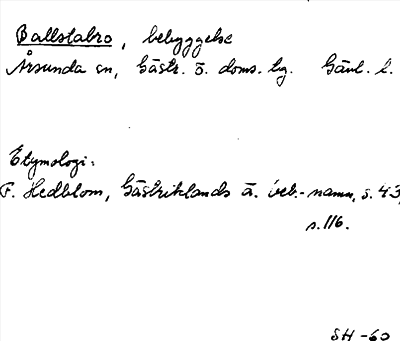 Ballstabro, bebyggelse
Årsunda sn, Gästr. ö. doms. tg. Gävl. l.
Etymologi:
F. Hedblom, Gästriklands ä. beb.-namn, s. 43,
s. 116.
SH -60